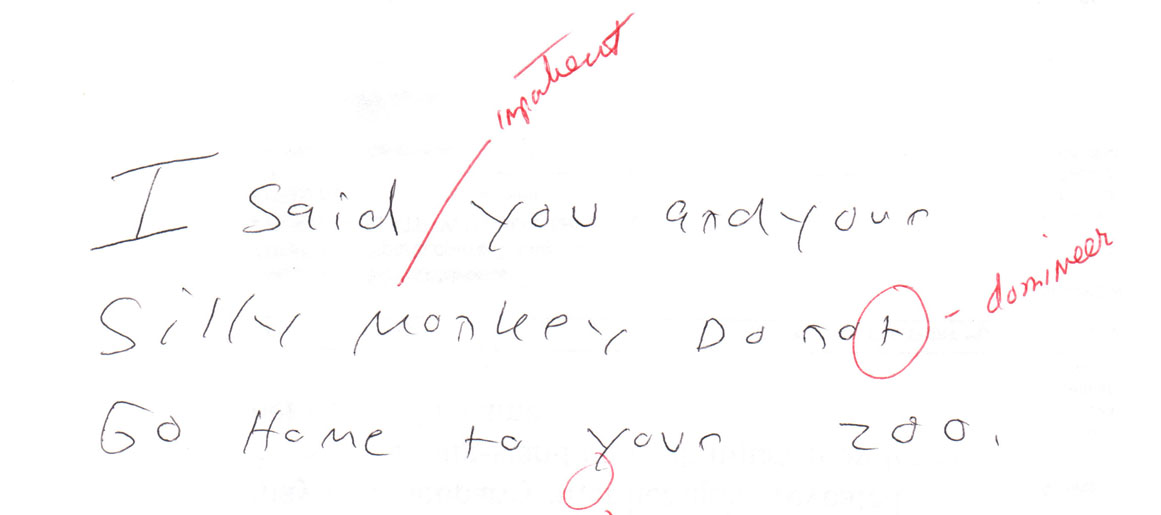 impatient
I Said you and your
Silly Monkey Do not
- domineer
Go Home to your zoo.